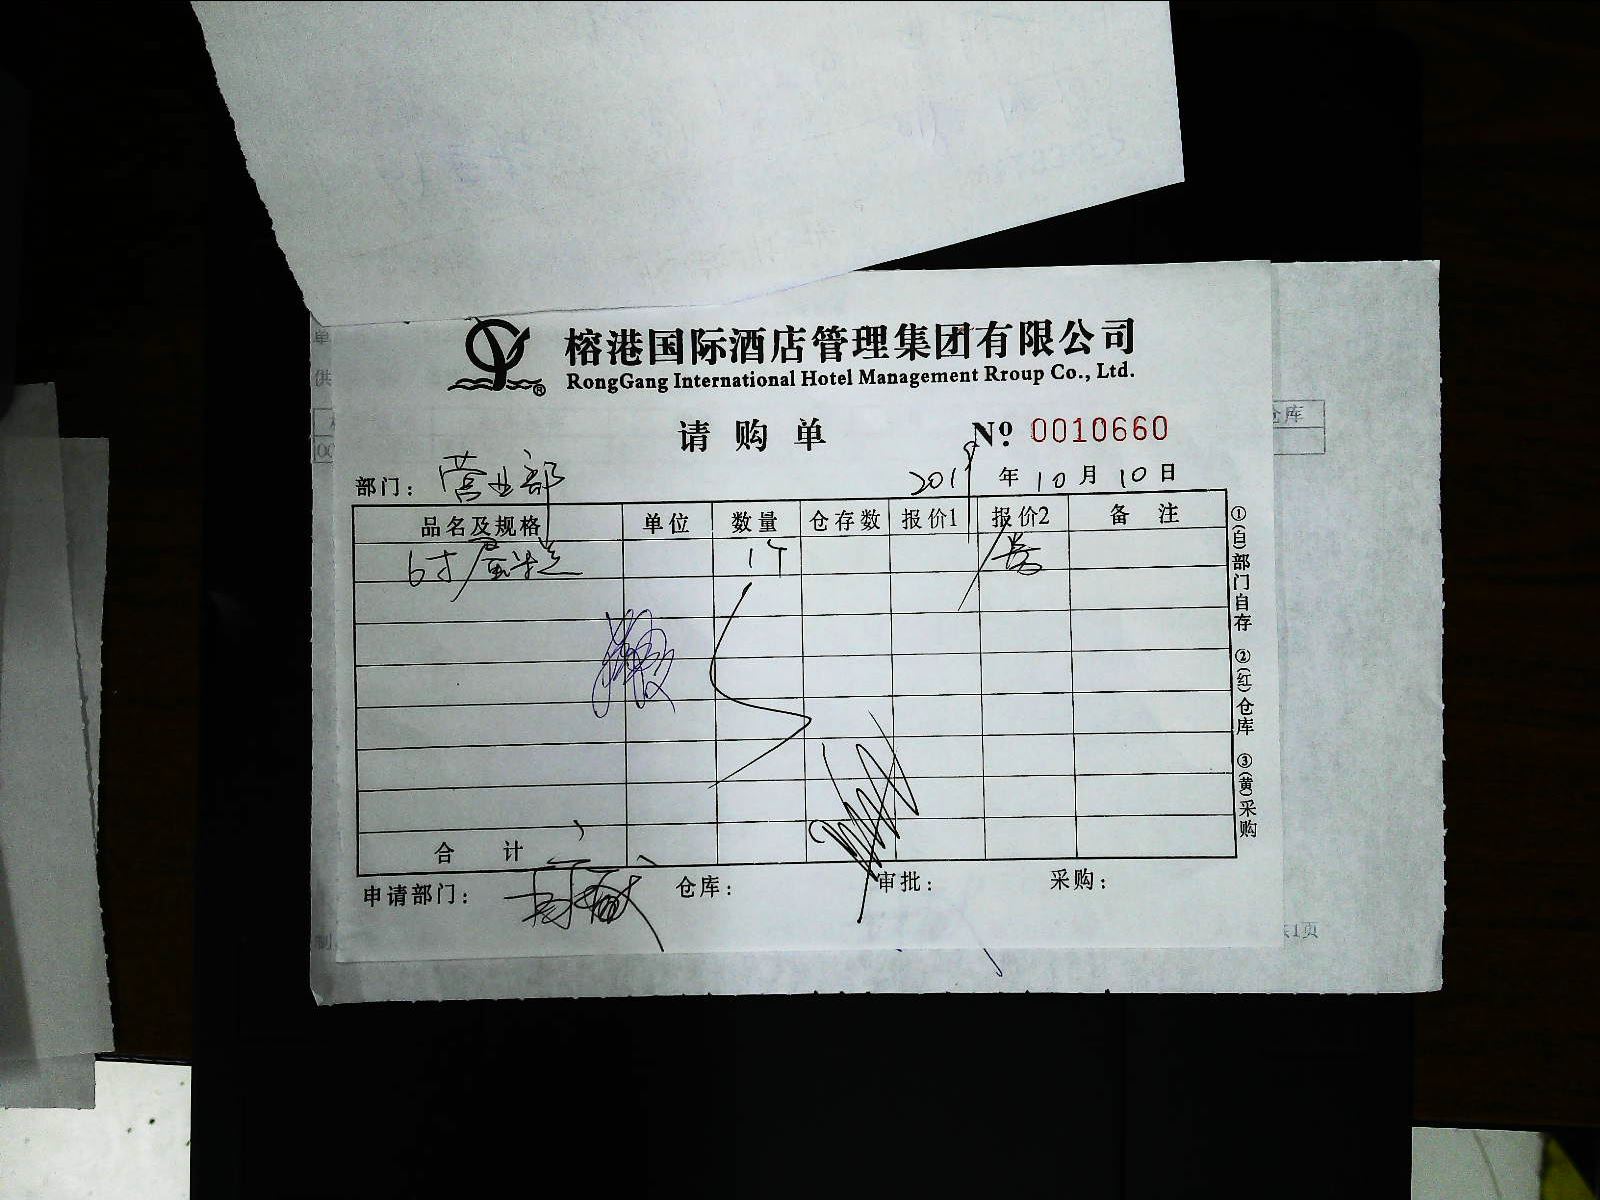 榕港国际酒店管理集团有限公司
RongGang International Hotel Management Rroup Co., Ltd.
请购单 № 0010660
部门：营业部 2019年10月10日
品名及规格 单位 数量 仓存数 报价1 报价2 备注
6寸蛋糕 1个
合计
申请部门： 仓库： 审批： 采购：
①(白)部门自存 ②(红)仓库 ③(黄)采购
单
供
仓库
00
制
共1页